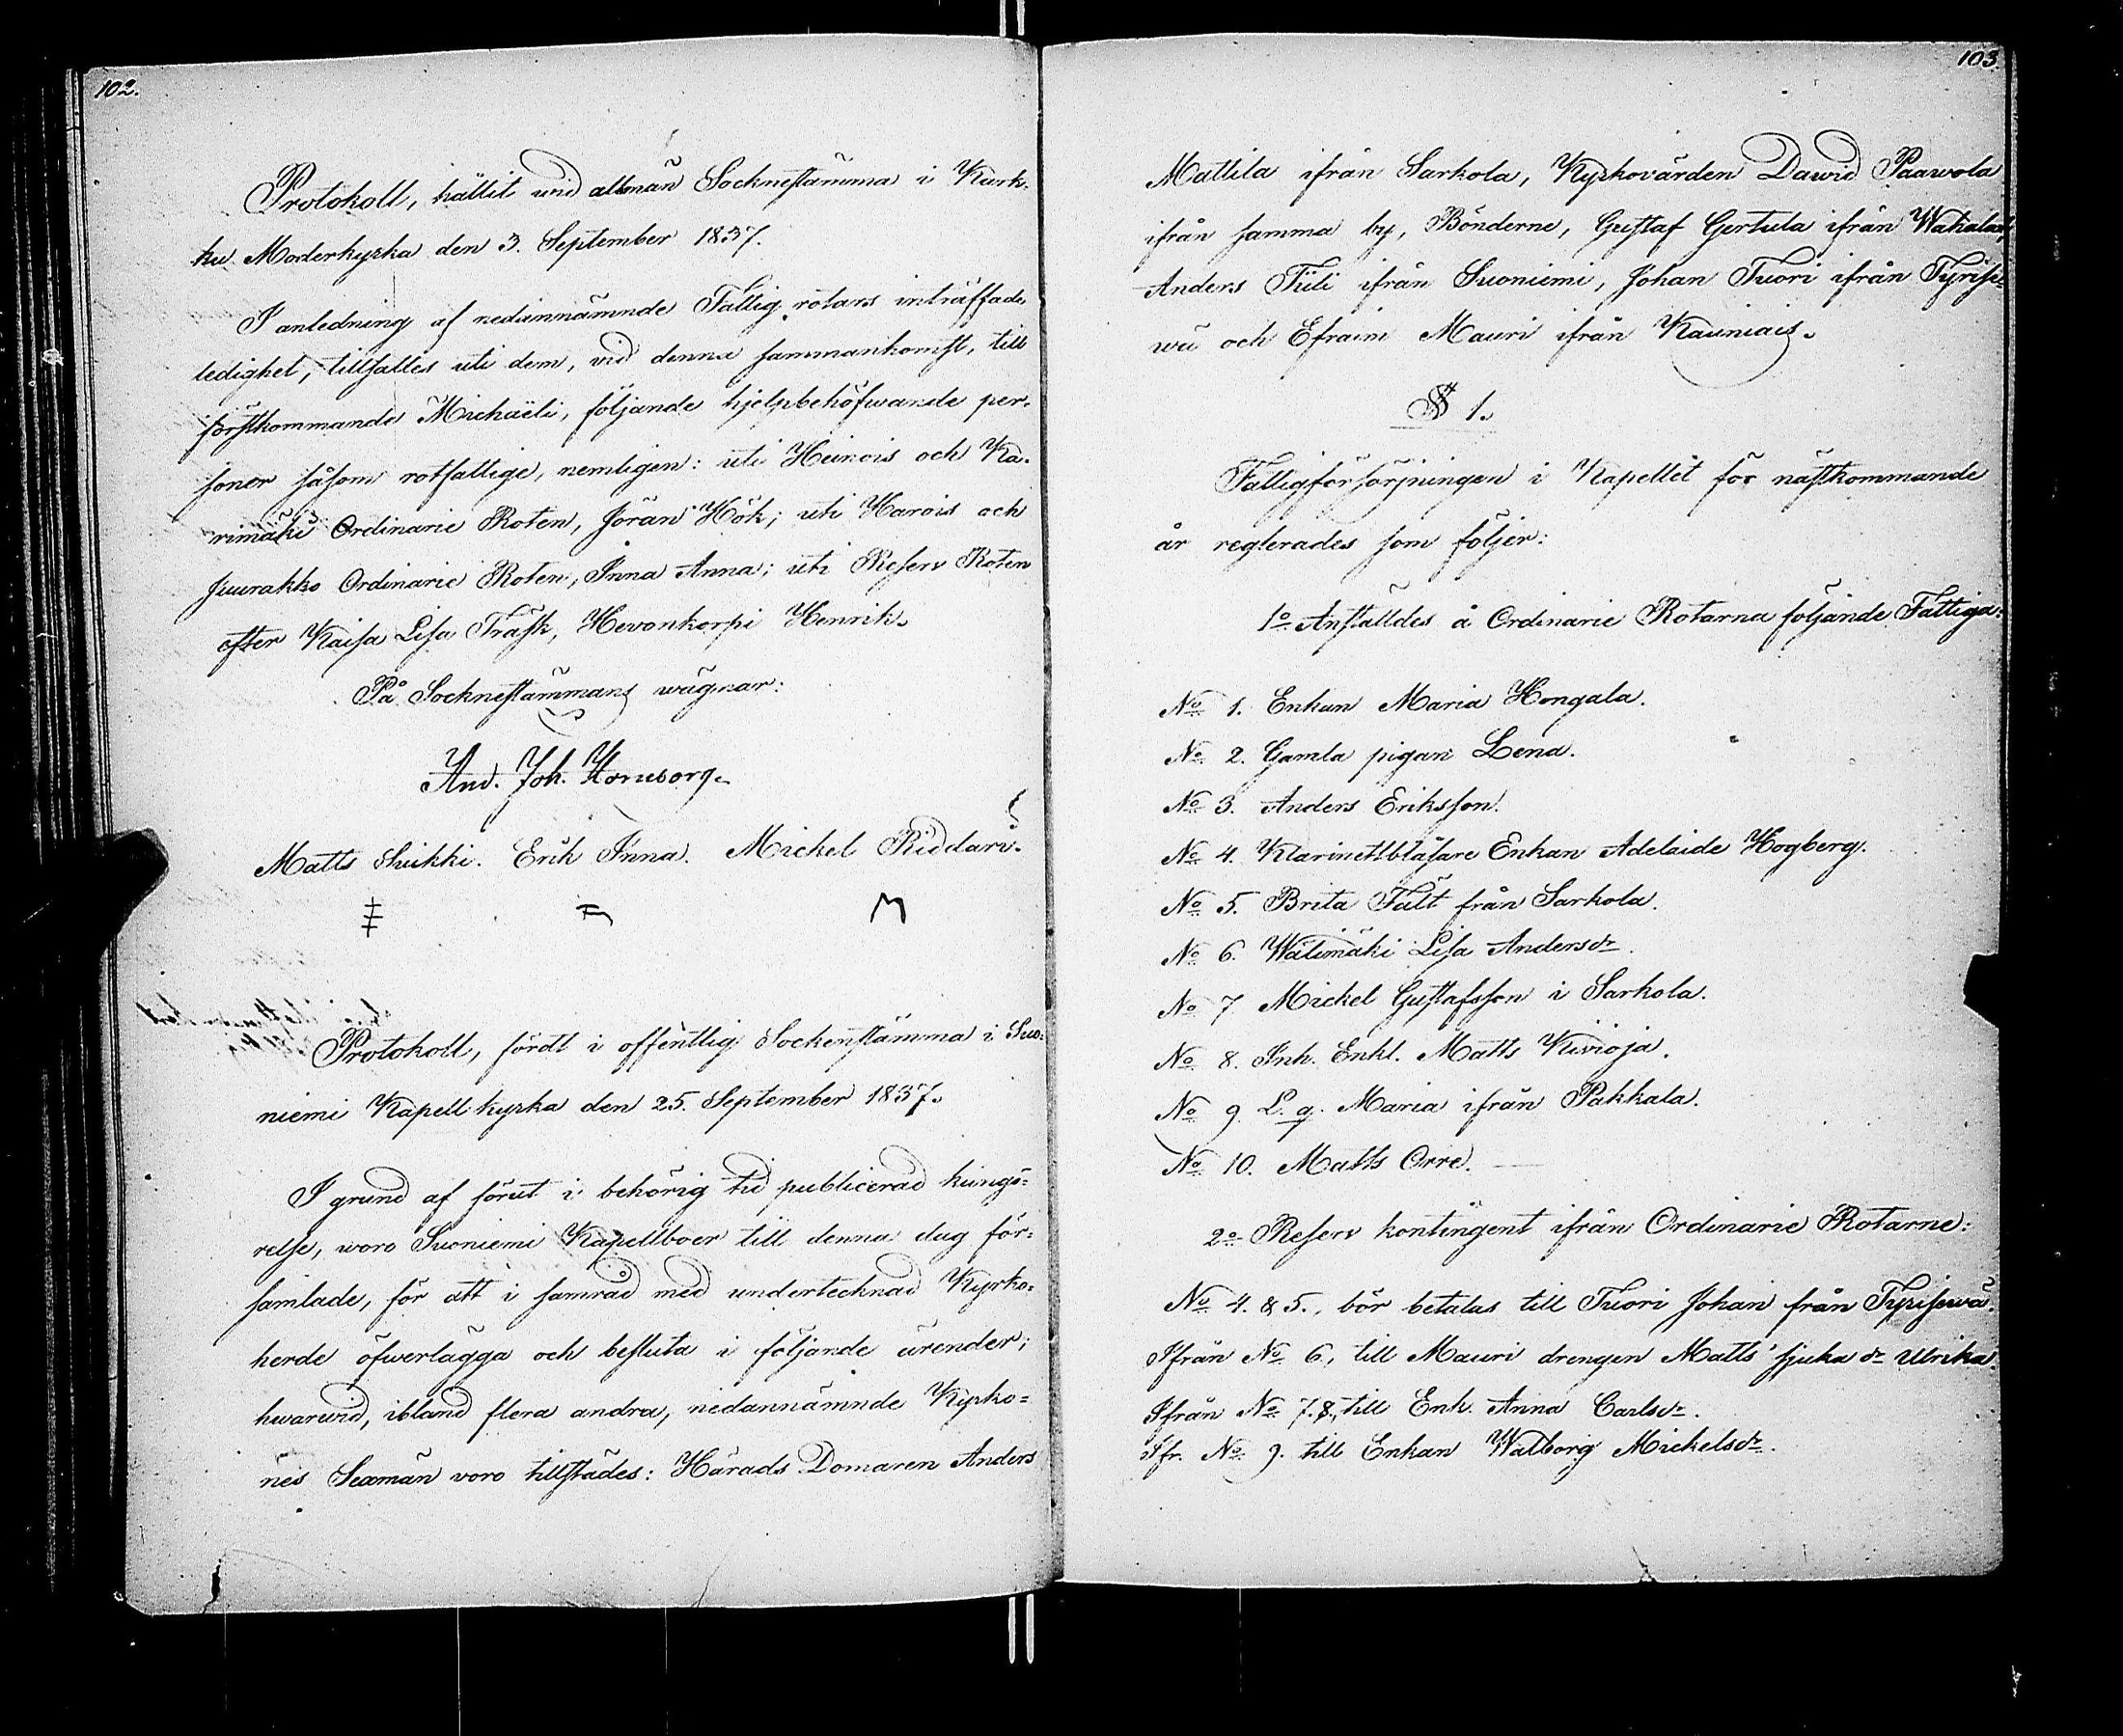 102.
Protokoll, hållit vid allmän Sockneståmma i Kark-
ku Moderkyrka den 3. September 1837.
I anledning af nedannämnde Fattig rotars inträffade
ledighet, tillsattes uti dem, vid denna sammankomst, till
förstkommande Michaëli, följande hjelpbehöfwande per-
soner såsom rotfattige, nemligen: uti Heinois och Ka-
rimäki Ordinarie Roten, Jöran Hök; uti Harois och
Juurakko Ordinarie Roten, Inna Anna; uti Reserv Roten
efter Kaisa Lisa Träsk, Hevonkorpi Henrik.
På Socknestämmans wägnar:
And. Joh. Hornborg.
Matts Suikki. Erik Inna. Mickel Riddari.
Protokoll, fördt i offentlig Sockenstämma i Suo-
niemi Kapell kyrka den 25. September 1837.
I grund af förut i behörig tid publicerad kungö=
relse, woro Suoniemi Kapellboer till denna dag för=
samlade, för att i samråd med undertecknad Kyrko=
herde öfwerlägga och besluta i följande ärender;
hwarwid, ibland flera andra, nedannämnde Kyrko=
nes Sexmän voro tillstädes: Härads Domaren Anders
103.
Mattila ifrån Sarkola, Kyrkovärden Dawid Paawola
ifrån samma by, Bönderne, Gustaf Gertula ifrån Wahalax,
Anders Tiili ifrån Suoniemi, Johan Tuori ifrån Tyrise-
wä och Efraim Mauri ifrån Kauniais.
§ 1.
Fattigförsörjningen i Kapellet för nästkommande
år reglerades som följer:
1o Anställdes å Ordinarie Rotarna följande Fattiga:
No 1. Enkan Maria Hongala.
No 2. Gamla pigan Lena.
No 3. Anders Eriksson.
No 4. Klarinettblåsare Enkan Adelaide Hogberg.
No 5. Brita Fält från Sarkola.
No 6. Wälimäki Lisa Andersdr.
No 7 Mickel Gustafsson i Sarkola.
No 8. Inh. Enkl. Matts Kivioja.
No 9. L. q. Maria ifrån Pakkala.
No 10. Matts Orre.
2o Reserv kontingent ifrån Ordinarie Rotarne:
No 4. & 5., bör betalas till Tuori Johan från Tyrisewä.
Ifrån No 6., till Mauri drengen Matts' sjuka dr Ulrika.
Ifrån No 7. 8., till Enk. Anna Carlsdr.
Ifr. No 9. till Enkan Walborg Mickelsdr.